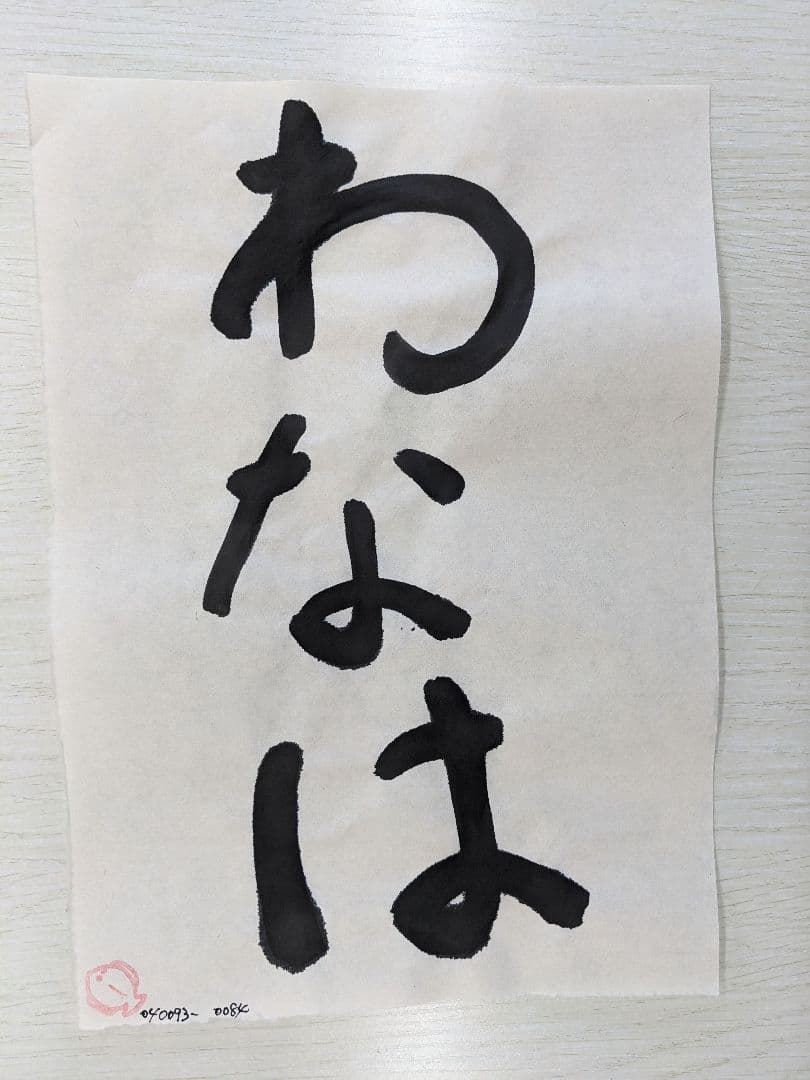 わ
な
は
040093- 0084